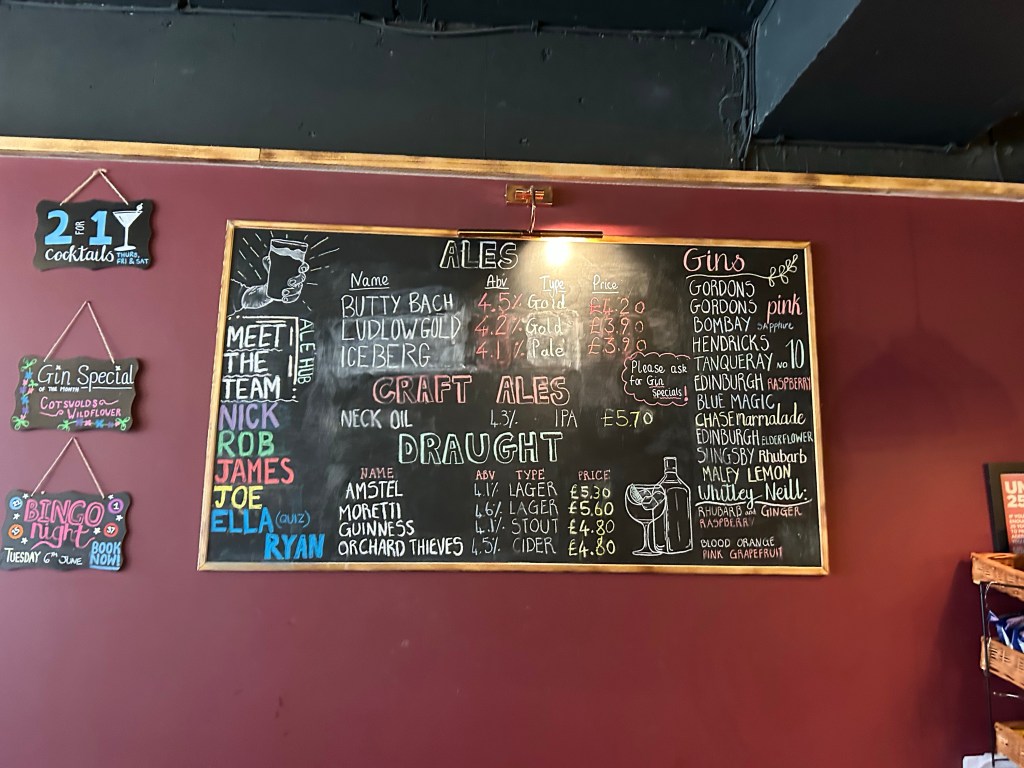 2 FOR 1
cocktails THURS, FRI & SAT
Gin Special
OF THE MONTH
COTSWOLDS
WILDFLOWER
BINGO
night
TUESDAY 6TH JUNE
BOOK NOW!
ALE HUB
MEET
THE
TEAM
NICK
ROB
JAMES
JOE
ELLA (QUIZ)
RYAN
ALES
Name Abv Type Price
BUTTY BACH 4.5% Gold £4.20
LUDLOW GOLD 4.2% Gold £3.90
ICEBERG 4.1% Pale £3.90
Please ask
for Gin
specials!
CRAFT ALES
NECK OIL 4.3% IPA £5.70
DRAUGHT
NAME ABV TYPE PRICE
AMSTEL 4.1% LAGER £5.30
MORETTI 4.6% LAGER £5.60
GUINNESS 4.1% STOUT £4.80
ORCHARD THIEVES 4.5% CIDER £4.80
Gins
GORDONS
GORDONS pink
BOMBAY SAPPHIRE
HENDRICKS
TANQUERAY NO 10
EDINBURGH RASPBERRY
BLUE MAGIC
CHASE marmalade
EDINBURGH ELDERFLOWER
SLINGSBY Rhubarb
MALFY LEMON
Whitley Neill:
RHUBARB and GINGER
RASPBERRY
BLOOD ORANGE
PINK GRAPEFRUIT